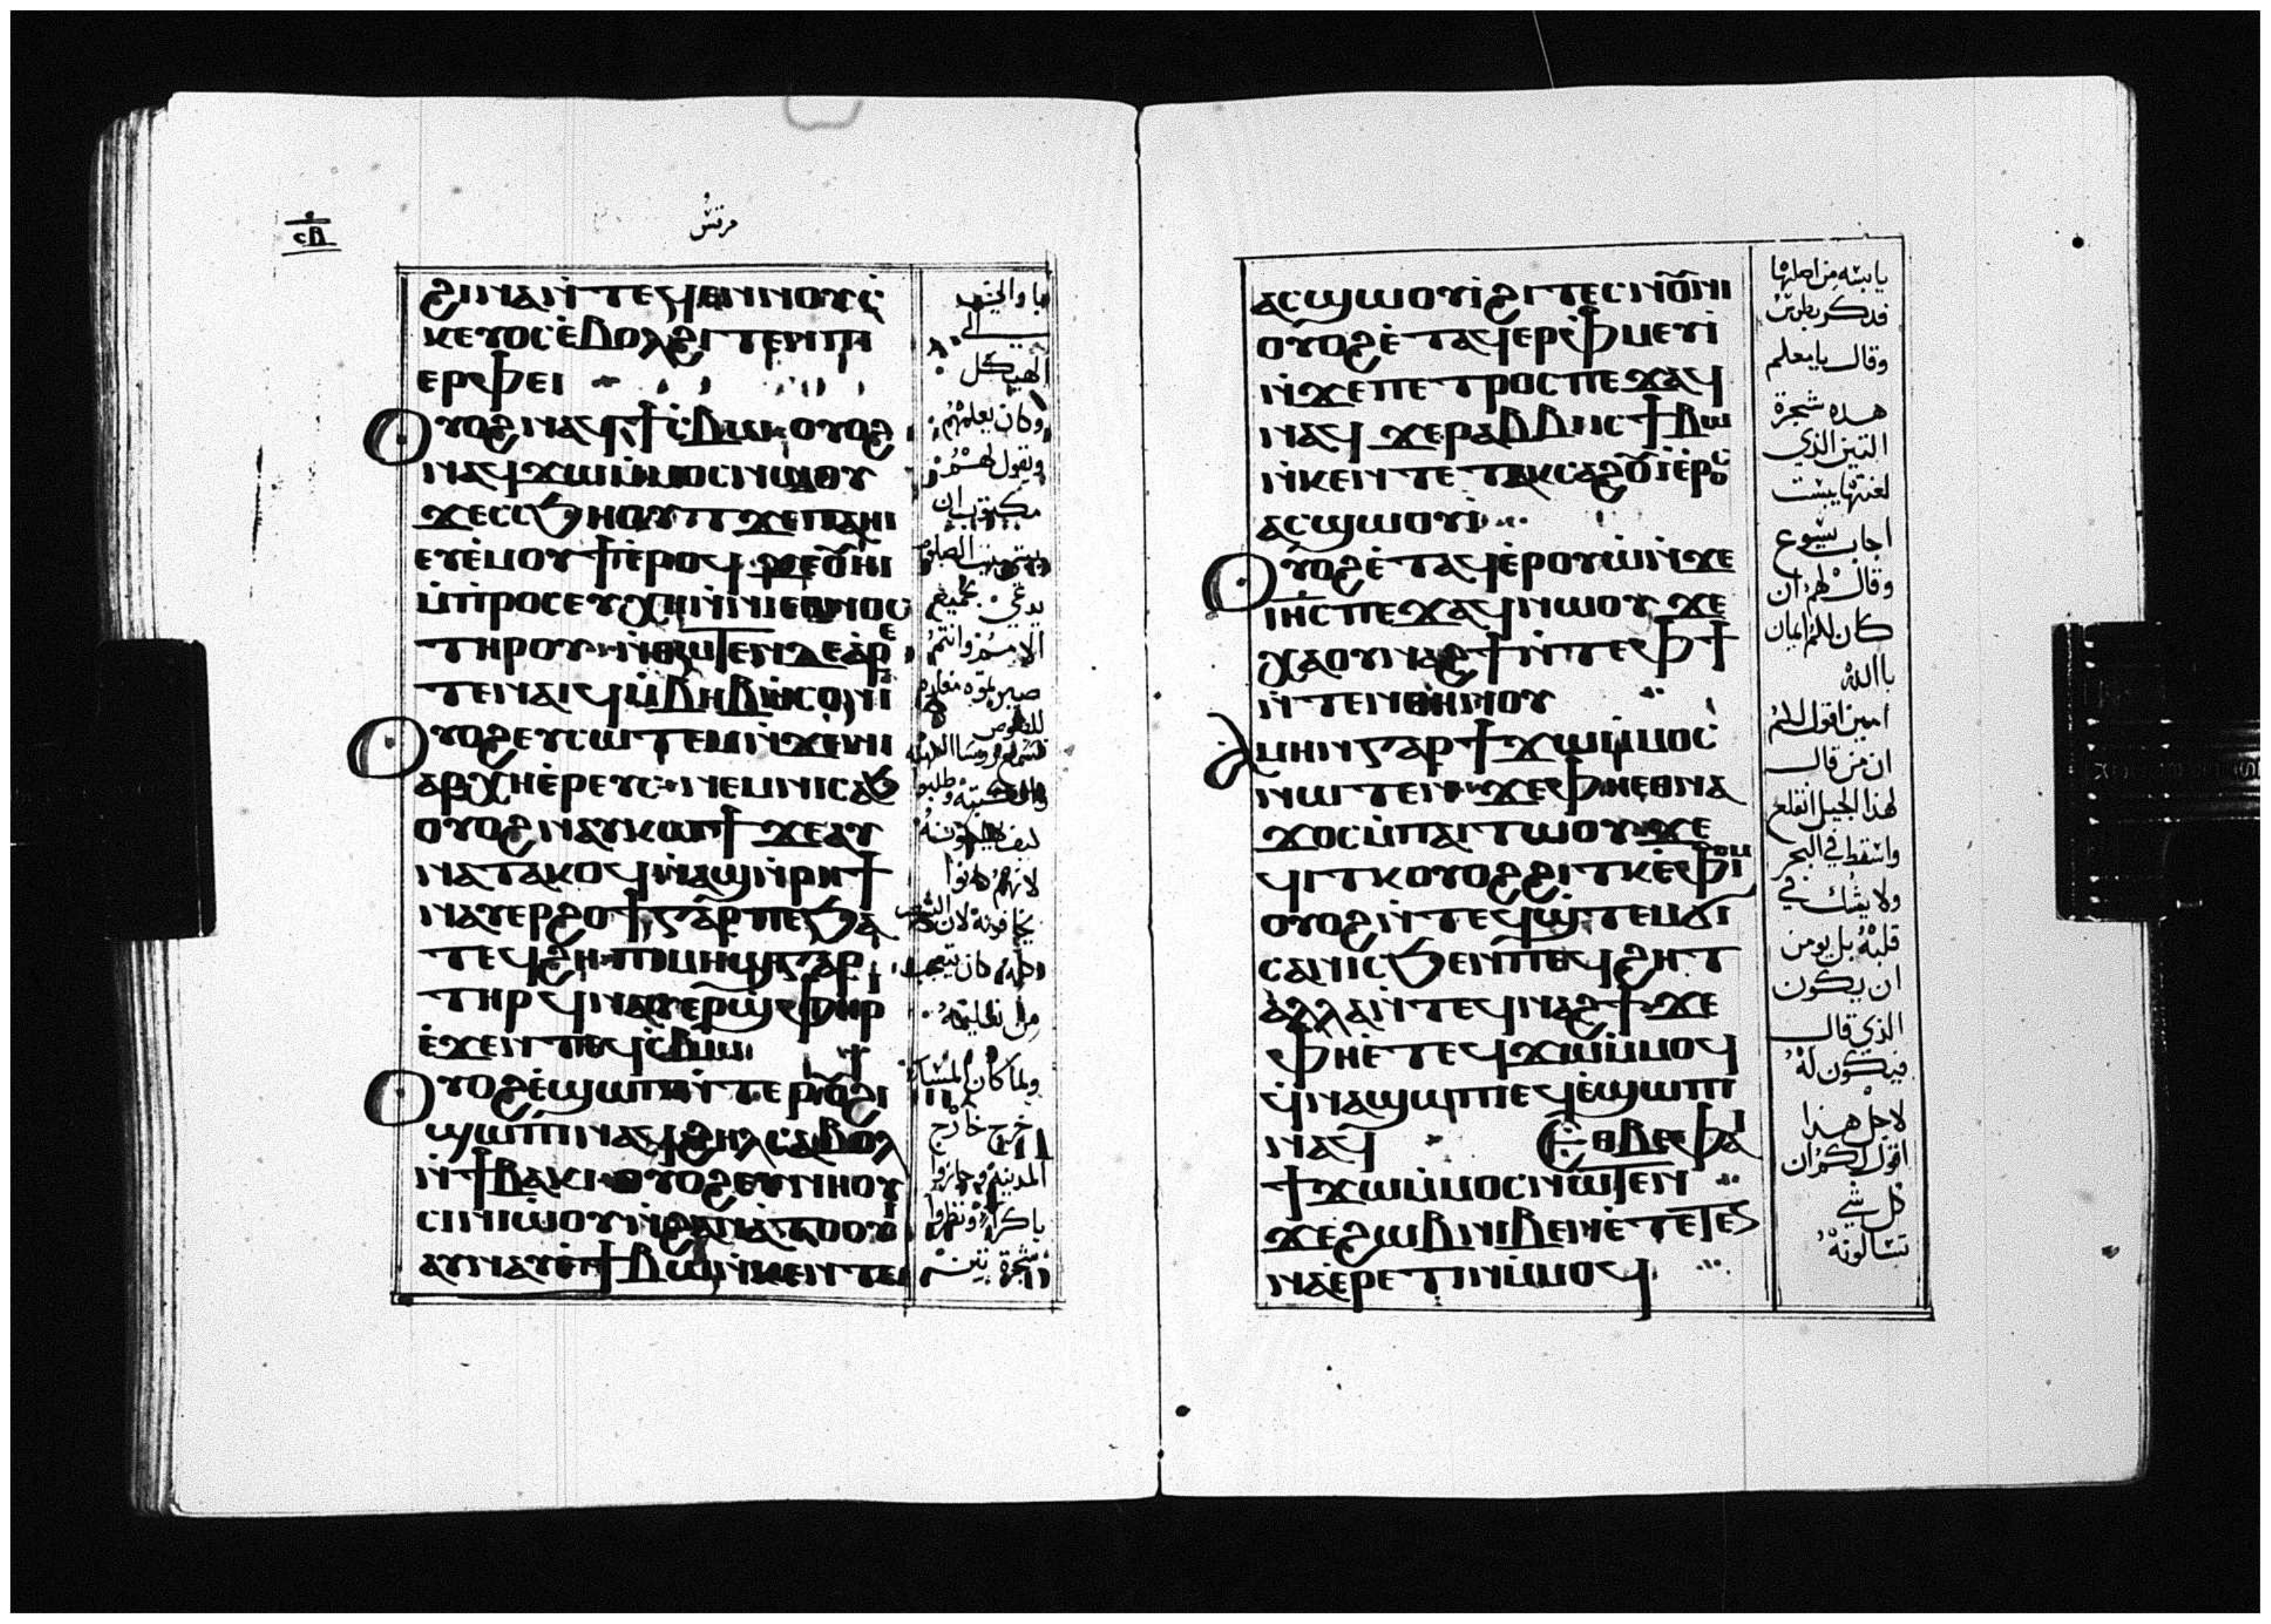 ⲥⲃ
مرقس
ϩⲓⲛⲁ ⲛ̀ⲧⲉϥⲉⲛ ⲛⲟⲩⲥ
ⲕⲉⲩⲟⲥ ⲉ̀ⲃⲟⲗϩⲓⲧⲉⲛ ⲡⲓ
ⲉⲣⲫⲉⲓ
ⲟⲩⲟϩ ⲛⲁϥϯⲥ̀ⲃⲱ ⲟⲩⲟϩ
ⲛⲁϥϫⲱ ⲙ̀ⲙⲟⲥ ⲛⲱⲟⲩ
ϫⲉ ⲥⲥϧⲏⲟⲩⲧ ϫⲉ ⲡⲁⲏⲓ
ⲉⲩⲉ̀ⲙⲟⲩϯ ⲉ̀ⲣⲟϥ ϫⲉ ⲟ̅ⲏⲓ
ⲙ̀ⲡⲣⲟⲥⲉⲩⲭⲏ ⲛ̀ⲛⲓⲉⲑⲛⲟⲥ
ⲧⲏⲣⲟⲩ ⲛ̀ⲑⲱⲧⲉⲛ ⲇⲉ ⲁⲣⲉ
ⲧⲉⲛⲁⲓϥ ⲙ̀ⲃⲏⲃ ⲛ̀ⲥⲟⲛⲓ
ⲟⲩⲟϩ ⲉⲩⲥⲱⲧⲉⲙ ⲛ̀ϫⲉ ⲛⲓ
ⲁⲣⲭⲏⲉ̀ⲣⲉⲩⲥ ⲛⲉⲙ ⲛⲓⲥⲁϧ
ⲟⲩⲟϩ ⲛⲁⲩⲕⲱϯ ϫⲉ ⲁⲩ
ⲛⲁⲧⲁⲕⲟϥ ⲛ̀ⲁϣ ⲛ̀ⲣⲏϯ
ⲛⲁⲩⲉⲣϩⲟϯ ⲅⲁⲣ ⲡⲉ ϧⲁ
ⲧⲉϥϩⲏ ⲡⲓⲙⲏϣ ⲅⲁⲣ
ⲧⲏⲣϥ ⲛⲁⲩⲉⲣϣⲫⲏⲣ
ⲉ̀ϫⲉⲛ ⲧⲉϥⲥ̀ⲃⲱ
ⲟⲩⲟϩ ⲉ̀ϣⲱⲡ ⲛ̀ⲧⲉ ⲣⲟⲩϩⲓ
ϣⲱⲡⲓ ⲛⲁϥϩⲏⲗ ⲥⲁⲃⲟⲗ
ⲛ̀ϯⲃⲁⲕⲓ ⲟⲩⲟϩ ⲉⲩⲛⲏⲟⲩ
ⲥⲓⲛⲓⲱⲟⲩ ⲛ̀ϩⲁⲛⲁ̀ⲧⲟⲟⲩⲓ̀
ⲁⲩⲛⲁⲩ ⲉ̀ϯⲃⲱ ⲛ̀ⲕⲉⲛⲧⲉ
الي
الهيكل
وكان يعلمهم
ويقول لهم
مكتوب ان
بيتي بيت الصلوه
يدعي لجميع
الامم وانتم
صيرتموه مغاره
للصوص
لانهم كانوا
ولما كان المسا
خرج خارج
المدينه
باكرا ونظروا
شجرة تين
ⲁⲥϣⲱⲟⲩⲓ̀ ϩⲓ ⲧⲉⲥⲛⲟ̅ⲛⲓ
ⲟⲩⲟϩ ⲉ̀ⲧⲁϥⲉⲣⲫⲙⲉⲩⲓ̀
ⲛ̀ϫⲉ ⲡⲉⲧⲣⲟⲥ ⲡⲉϫⲁϥ
ⲛⲁϥ ϫⲉ ⲣⲁⲃⲃⲓ ⲓⲥ ϯⲃⲱ
ⲛ̀ⲕⲉⲛⲧⲉ ⲧⲁⲕⲥⲁϩⲟ̅ⲓ̀ ⲉ̀ⲣⲟⲥ
ⲁⲥϣⲱⲟⲩⲓ̀
ⲟⲩⲟϩ ⲉ̀ⲧⲁϥⲉ̀ⲣⲟⲩⲱ̀ ⲛ̀ϫⲉ
ⲓⲏⲥ ⲡⲉϫⲁϥ ⲛⲱⲟⲩ ϫⲉ
ⲭⲁ ⲟⲩⲛⲁϩϯ ⲛ̀ⲧⲉ ⲫϯ
ⲛ̀ⲧⲉⲛⲑⲏⲛⲟⲩ
ⲁⲙⲏⲛ ⲅⲁⲣ ϯϫⲱ ⲙ̀ⲙⲟⲥ
ⲛⲱⲧⲉⲛ ϫⲉ ⲫⲏⲉⲑⲛⲁ
ϫⲟⲥ ⲙ̀ⲡⲁⲓⲧⲱⲟⲩ ϫⲉ
ϥⲓⲧⲕ ⲟⲩⲟϩ ϩⲓⲧⲕ ⲉ̀ⲫⲓⲟⲙ
ⲟⲩⲟϩ ⲛ̀ⲧⲉϥϣ̀ⲧⲉⲙϭⲓ
ⲥⲁⲛⲓⲥ ϧⲉⲛ ⲡⲉϥϩⲏⲧ
ⲁⲗⲗⲁ ⲛ̀ⲧⲉϥⲛⲁϩϯ ϫⲉ
ⲫⲏⲉ̀ⲧⲉϥϫⲱ ⲙ̀ⲙⲟϥ
ϥ̀ⲛⲁϣⲱⲡⲓ ⲉϥⲉ̀ϣⲱⲡⲓ
ⲛⲁϥ ⲉⲑⲃⲉ ⲫⲁⲓ
ϯϫⲱ ⲙ̀ⲙⲟⲥ ⲛⲱⲧⲉⲛ
ϫⲉ ϩⲱⲃ ⲛⲓⲃⲉⲛ ⲉ̀ⲧⲉⲧⲉⲛ
ⲛⲁⲉ̀ⲣⲉⲧⲓⲛ ⲙ̀ⲙⲟϥ
يابسه من اصلها
فدكر بطرس
وقال يامعلم
هده شجرة
التين الذي
لعنتها يبست
اجاب يسوع
وقال لهم ان
كان لكم ايمان
بالله
امين اقول لكم
ان من قال
لهذا الجبل انقلع
واسقط في البحر
ولا يشك في
قلبه بل يومن
ان يكون
الذي قال
فيكون له
لاجل هدا
اقول لكم ان
كل شي
تسالونه